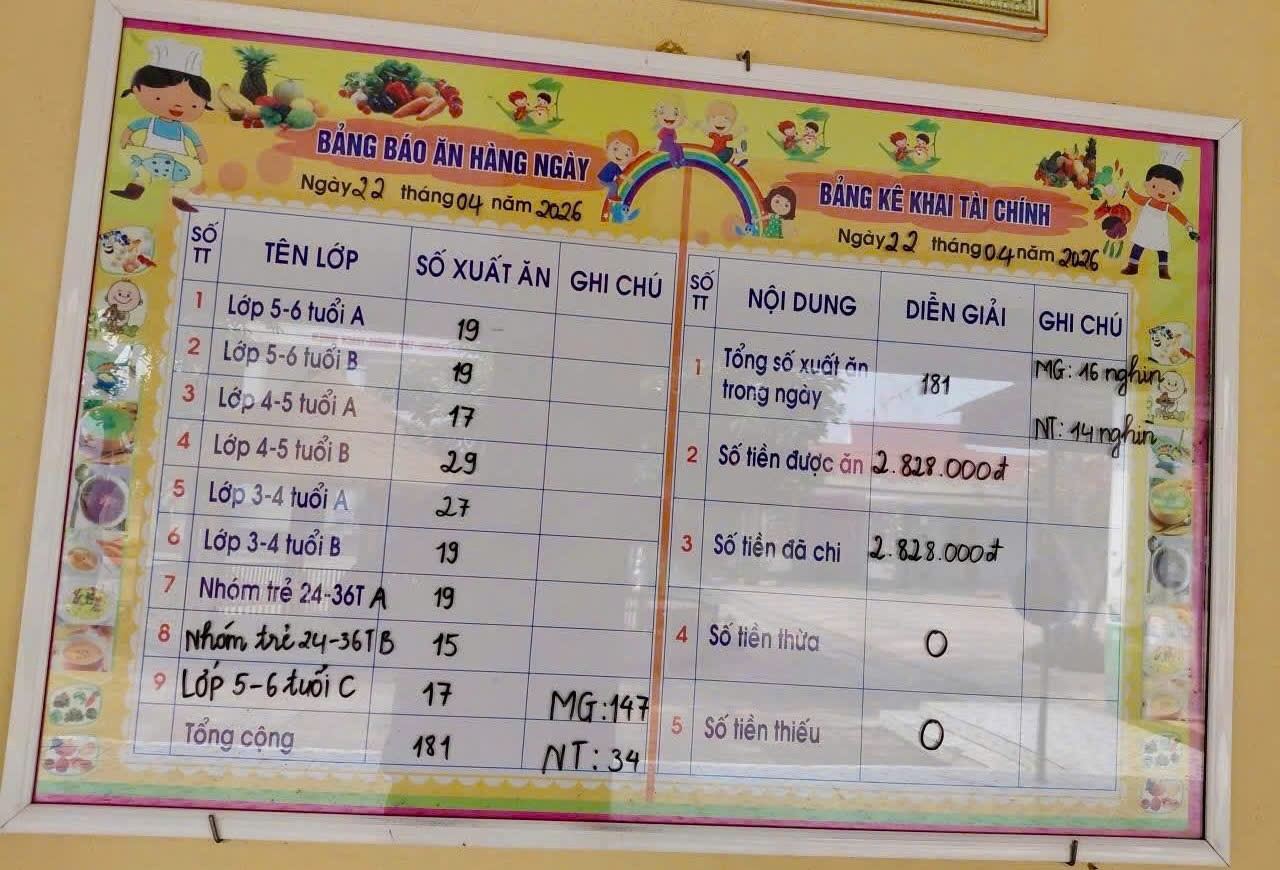 BẢNG BÁO ĂN HÀNG NGÀY
Ngày 22 tháng 04 năm 2026
SỐ TT TÊN LỚP SỐ XUẤT ĂN GHI CHÚ
1 Lớp 5-6 tuổi A 19
2 Lớp 5-6 tuổi B 19
3 Lớp 4-5 tuổi A 17
4 Lớp 4-5 tuổi B 29
5 Lớp 3-4 tuổi A 27
6 Lớp 3-4 tuổi B 19
7 Nhóm trẻ 24-36T A 19
8 Nhóm trẻ 24-36T B 15
9 Lớp 5-6 tuổi C 17 MG: 147
Tổng cộng 181 NT: 34
BẢNG KÊ KHAI TÀI CHÍNH
Ngày 22 tháng 04 năm 2026
SỐ TT NỘI DUNG DIỄN GIẢI GHI CHÚ
1 Tổng số xuất ăn trong ngày 181 MG: 16 nghìn
NT: 14 nghìn
2 Số tiền được ăn 2.828.000đ
3 Số tiền đã chi 2.828.000đ
4 Số tiền thừa 0
5 Số tiền thiếu 0